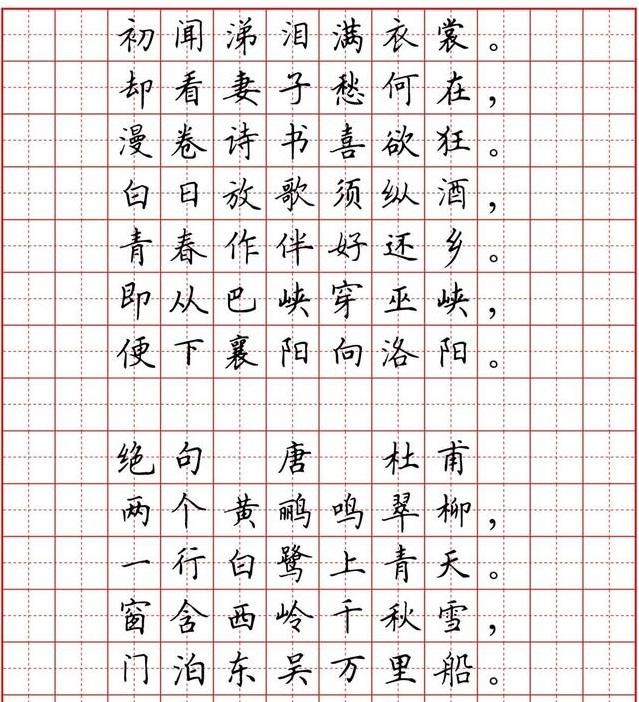 初闻涕泪满衣裳。
却看妻子愁何在，
漫卷诗书喜欲狂。
白日放歌须纵酒，
青春作伴好还乡。
即从巴峡穿巫峡，
便下襄阳向洛阳。
绝句 唐 杜甫
两个黄鹂鸣翠柳，
一行白鹭上青天。
窗含西岭千秋雪，
门泊东吴万里船。